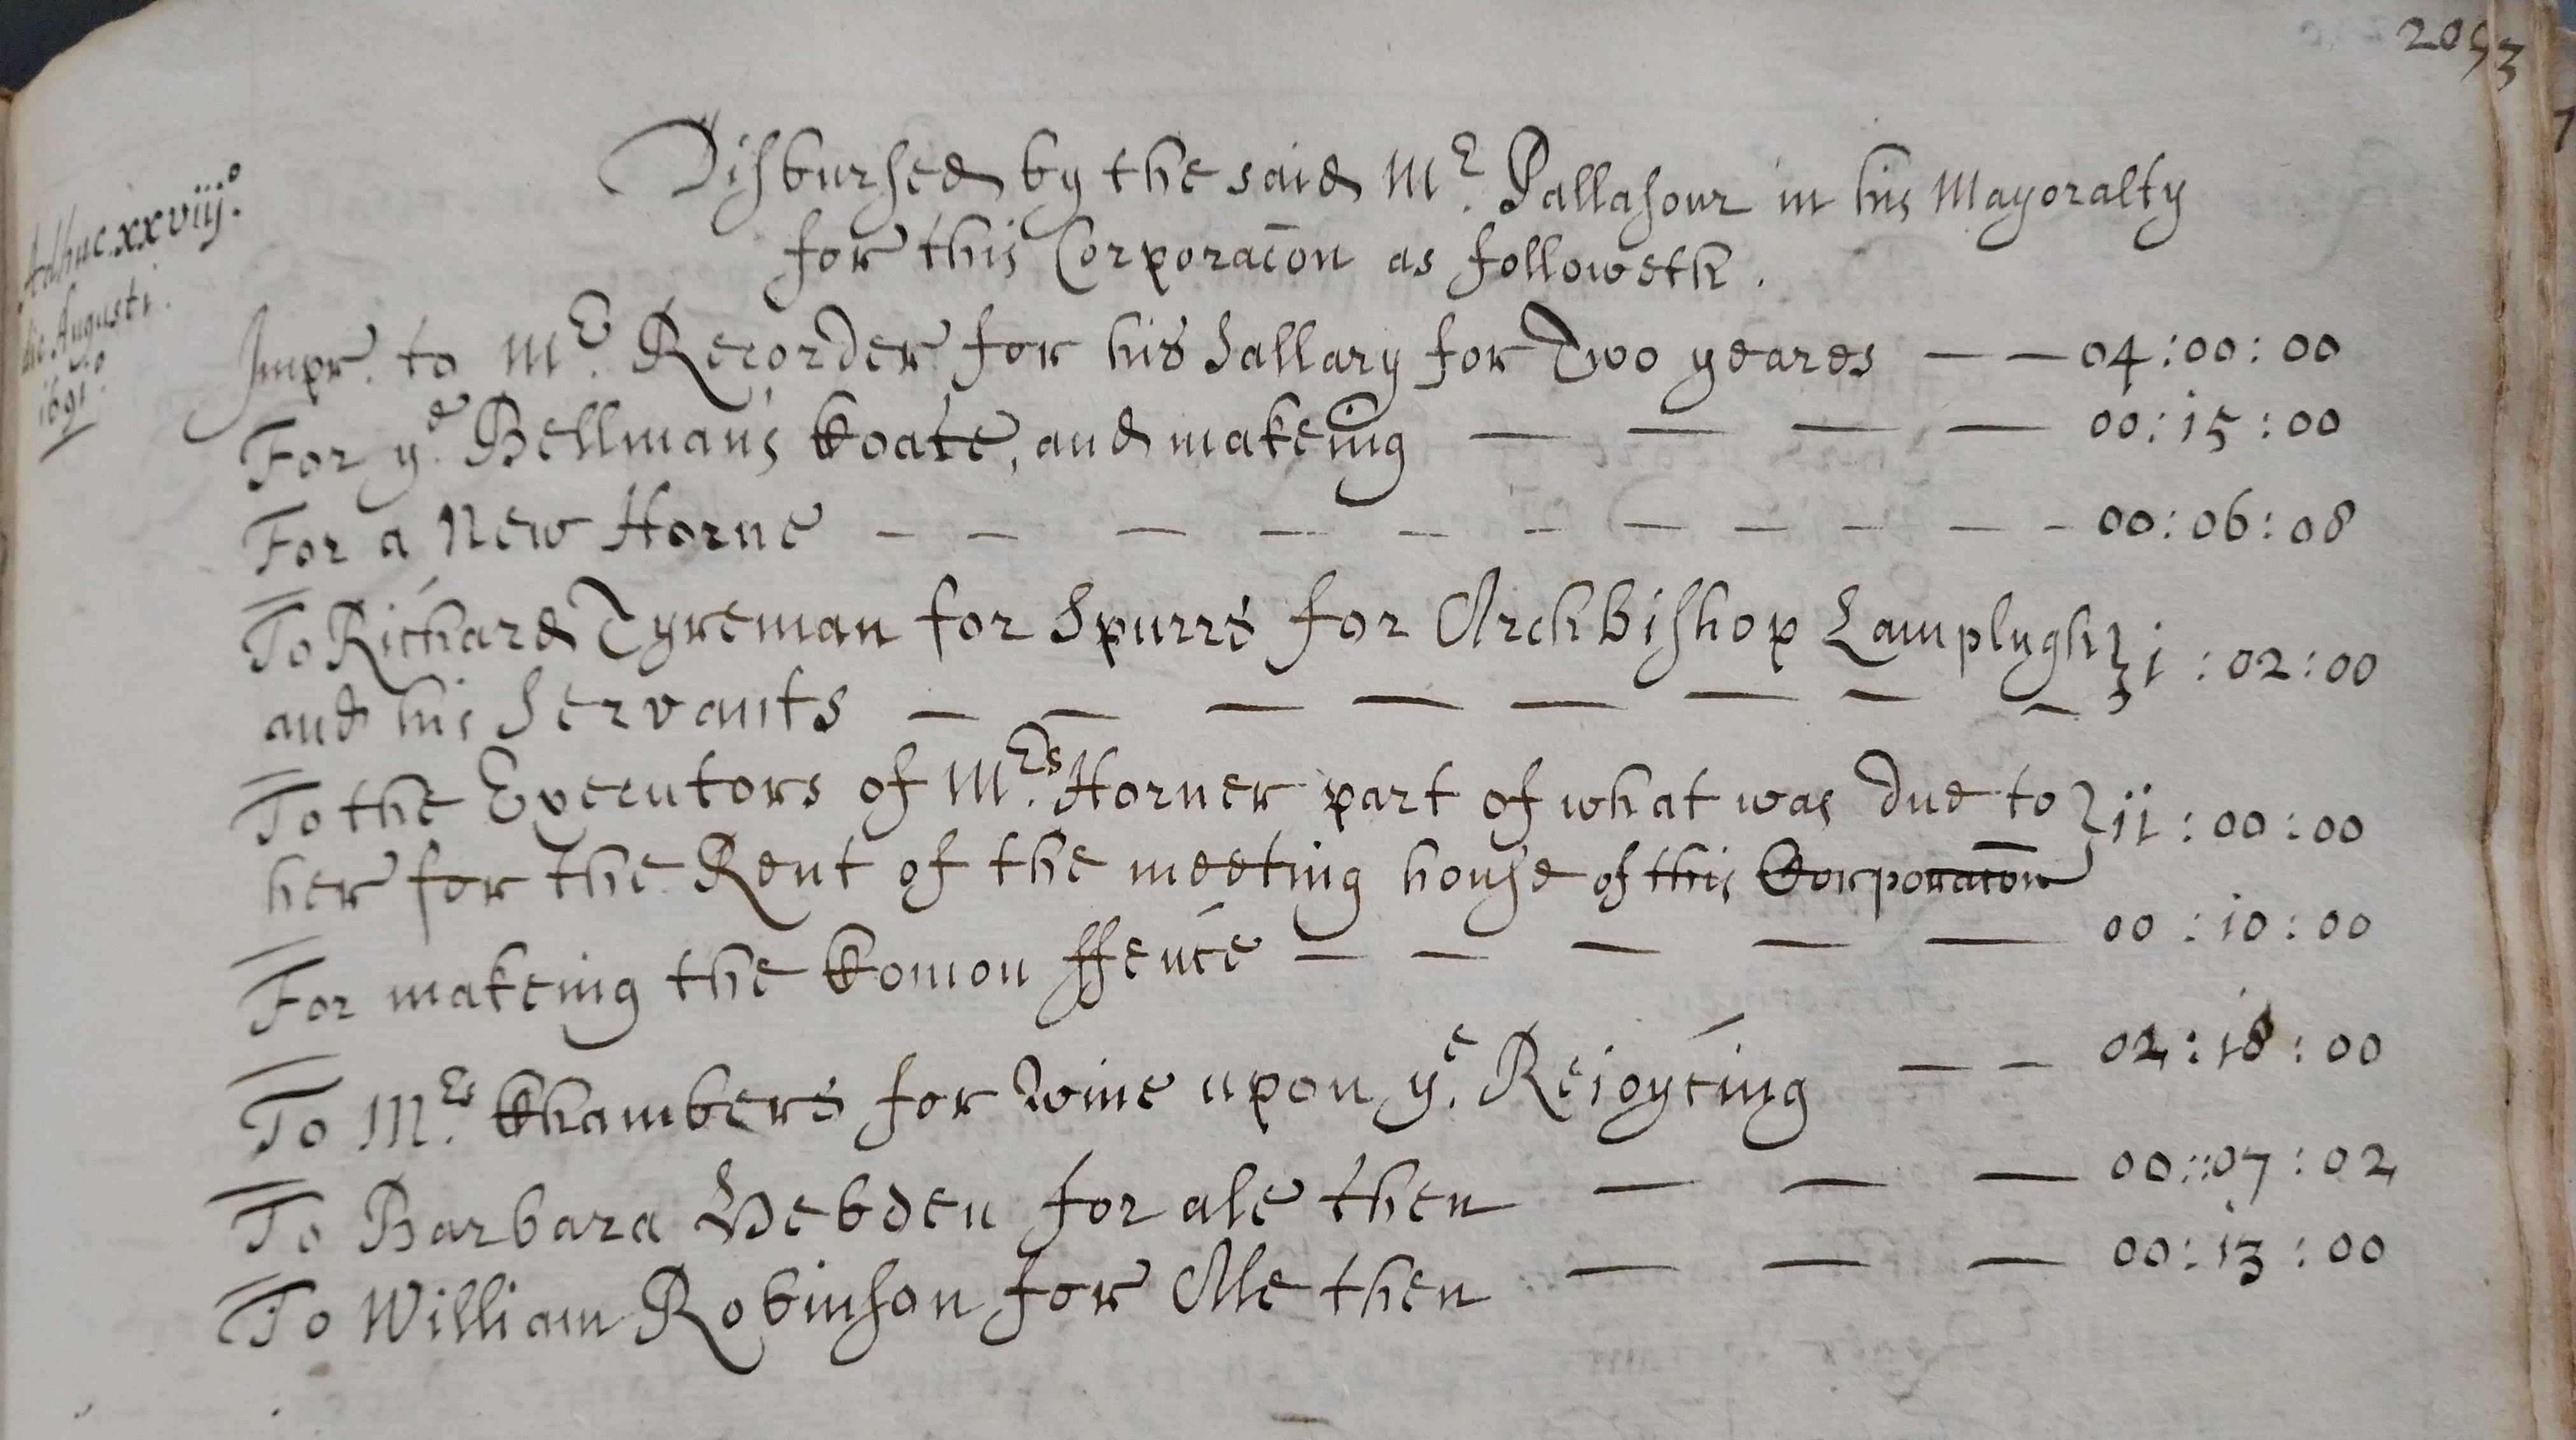 2053
Adhuc xxviij.º
die Augusti.
1691º.
Disbursed by the said Mr. Pallasour in his Mayoralty
for this Corporacōn as followeth.
Impr. to Mr. Recorder for his Sallary for Two yeares — — 04:00:00
For ye. Bellman's Coate, and makeing — — — — 00:15:00
For a New Horne — — — — — — — — — — 00:06:08
To Richard Tyreman for Spurrs for ArchBishop Lamplugh } 1:02:00
and his Servants — — — — — — —
To the Executors of Mrs. Horner part of what was due to } 11:00:00
her for the Rent of the meeting house of this Corporacōn
For makeing the Comon ffence — — — — — 00:10:00
To Mrs. Chambers for Wine upon ye. Rejoycing — — 02:18:00
To Barbara Hebden for ale then — — — 00::07:02
To William Robinson for Ale then — — — 00:13:00